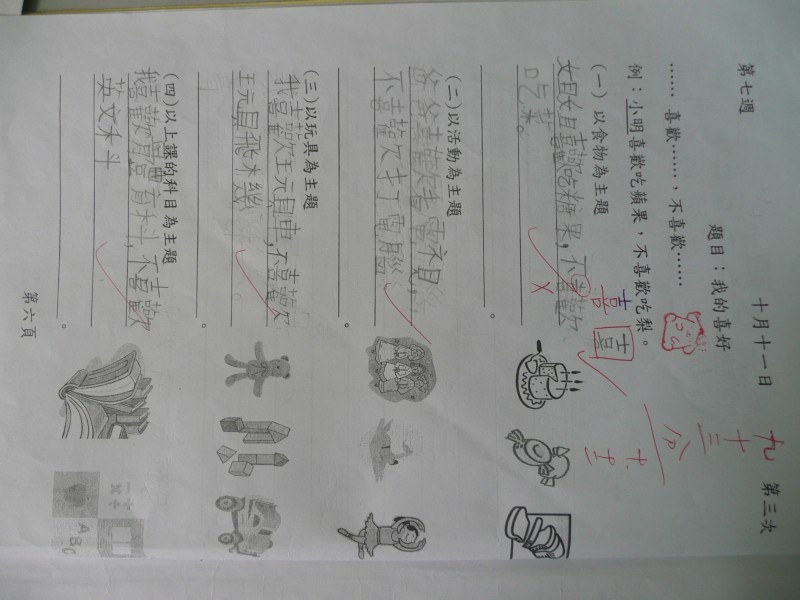 第七週　十月十一日　第三次
九十三分
題目：我的喜好
……喜歡……，不喜歡……
例：小明喜歡吃蘋果，不喜歡吃梨。
(一)以食物為主題
喜歡吃糖果，不喜歡
吉 喜
吃菜。
。
(二)以活動為主題
爸爸喜歡看電視，
不喜歡打電腦
。
(三)以玩具為主題
我喜歡玩具車，不喜歡
玩具飛機。
。
(四)以上課的科目為主題
我喜歡體育科，不喜歡
英文科
。
第六頁
ABC